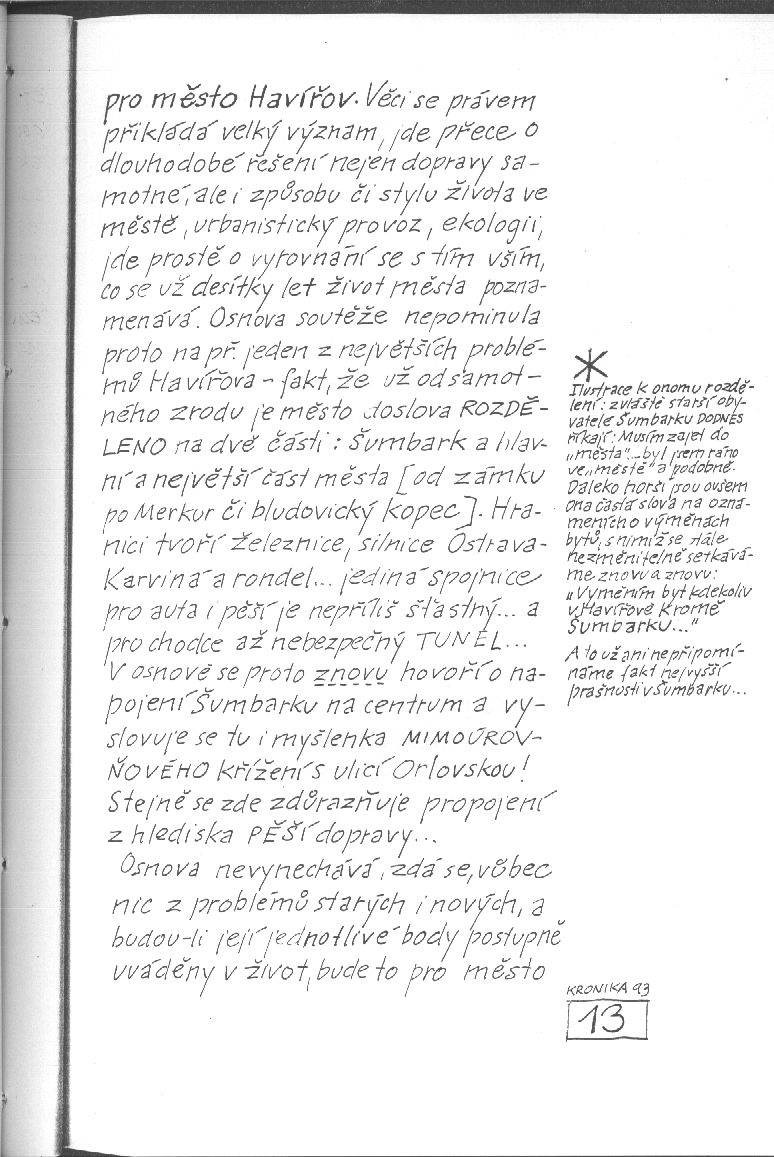 pro město Havířov. Věci se právem
přikládá velký význam, jde přece o
dlouhodobé řešení nejen dopravy sa-
motné, ale i způsobu či stylu života ve
městě, urbanistický provoz, ekologii,
jde prostě o vyrovnání se s tím vším,
co se už desítky let život města pozna-
menává. Osnova soutěže nepominula
proto např. jeden z největších problé-
mů Havířova - fakt, že už od samot-
ného zrodu je město doslova ROZDĚ-
LENO na dvě části: Šumbark a hlav-
ní a největší část města [od zámku
po Merkur či bludovický kopec]. Hra-
nici tvoří železnice, silnice Ostrava-
Karviná a rondel... jediná spojnice
pro auta i pěší je nepříliš šťastný... a
pro chodce až nebezpečný TUNEL...
V osnově se proto znovu hovoří o na-
pojení Šumbarku na centrum a vy-
slovuje se tu i myšlenka MIMOÚROV-
ŇOVÉHO křížení s ulicí Orlovskou!
Stejně se zde zdůrazňuje propojení
z hlediska PĚŠÍ dopravy...
Osnova nevynechává, zdá se, vůbec
nic z problémů starých i nových, a
budou-li její jednotlivé body postupně
uváděny v život, bude to pro město
*
Ilustrace k onomu rozdě-
lení: zvláště starší oby-
vatelé Šumbarku DODNES
říkají: Musím zajet do
„města"... byl jsem ráno
ve „městě" a podobně.
Daleko horší jsou ovšem
ona častá slova na ozná-
meních o výměnách
bytů, s nimiž se stále
nezměnitelně setkává-
me znovu a znovu:
„Vyměním byt kdekoliv
v Havířově kromě
Šumbarku..."
A to už ani nepřipomí-
náme fakt nejvyšší
prašnosti v Šumbarku...
KRONIKA 93
13